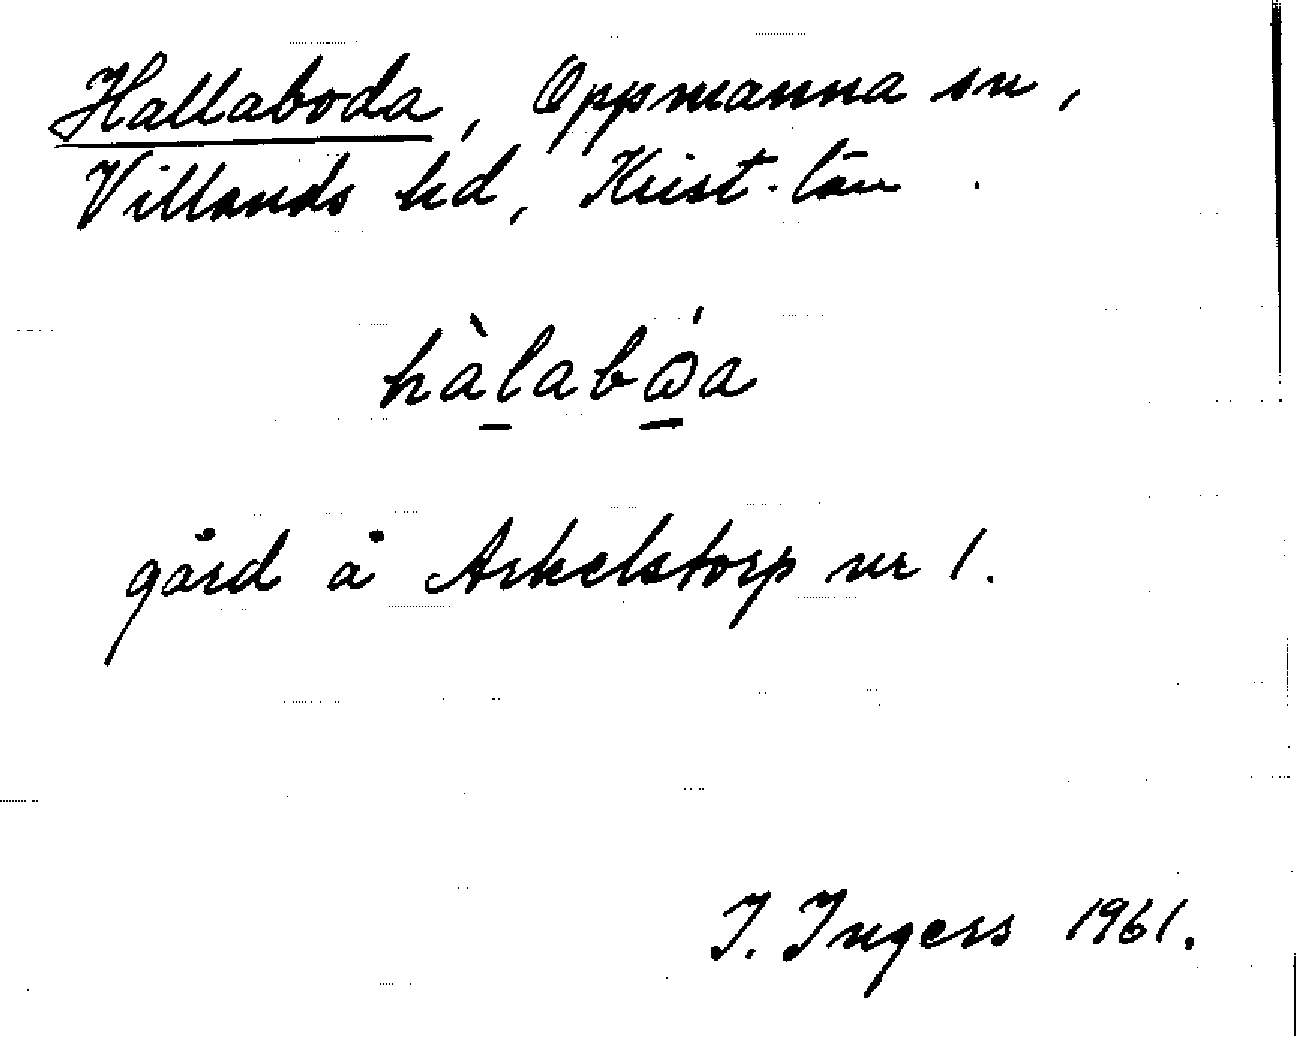 Hallaboda, Oppmanna sn,
Villands hd, Krist. län.
hàlabǿa
gård å Arkelstorp nr 1.
I. Ingers 1961.